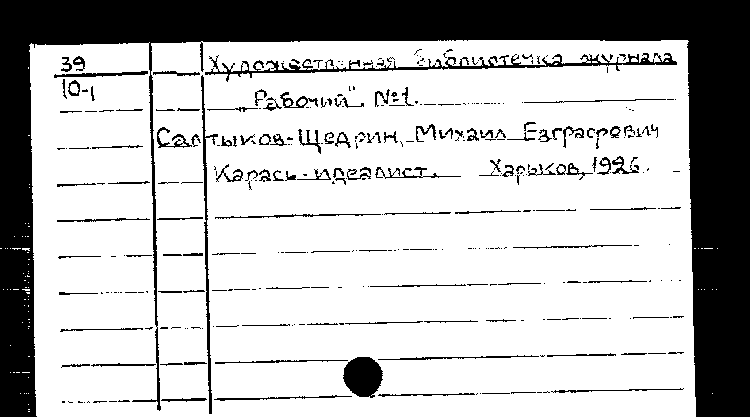 39 Художественная библиотечка журнала
10-1 „Рабочий". №1.
Салтыков-Щедрин, Михаил Евграфович
Карась-идеалист. Харьков, 1926.